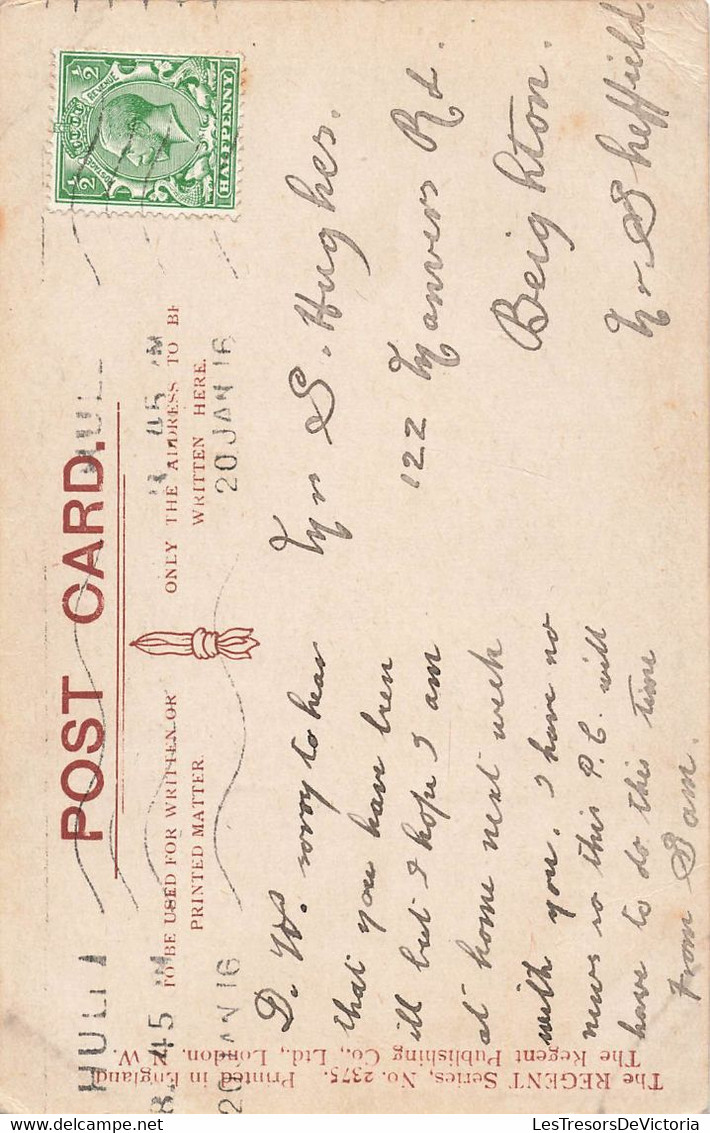 POST CARD.
TO BE USED FOR WRITTEN OR
PRINTED MATTER.
ONLY THE ADDRESS TO BE
WRITTEN HERE.
HULL
8. 45 AM
20 JAN 16
HULL
45 AM
20 JAN 16
REVENUE
POSTAGE
HALFPENNY
½
½
D. W. sorry to hear
that you have been
ill but I hope I am
at home next week
with you. I have no
news so this P.C. will
have to do this time
From Sam.
Mr S. Hughes.
122 Manvers Rd.
Beighton.
Nr Sheffield.
The REGENT Series, No. 2375. Printed in England.
The Regent Publishing Co., Ltd., London. N.W.
LesTresorsDeVictoria.delcampe.net